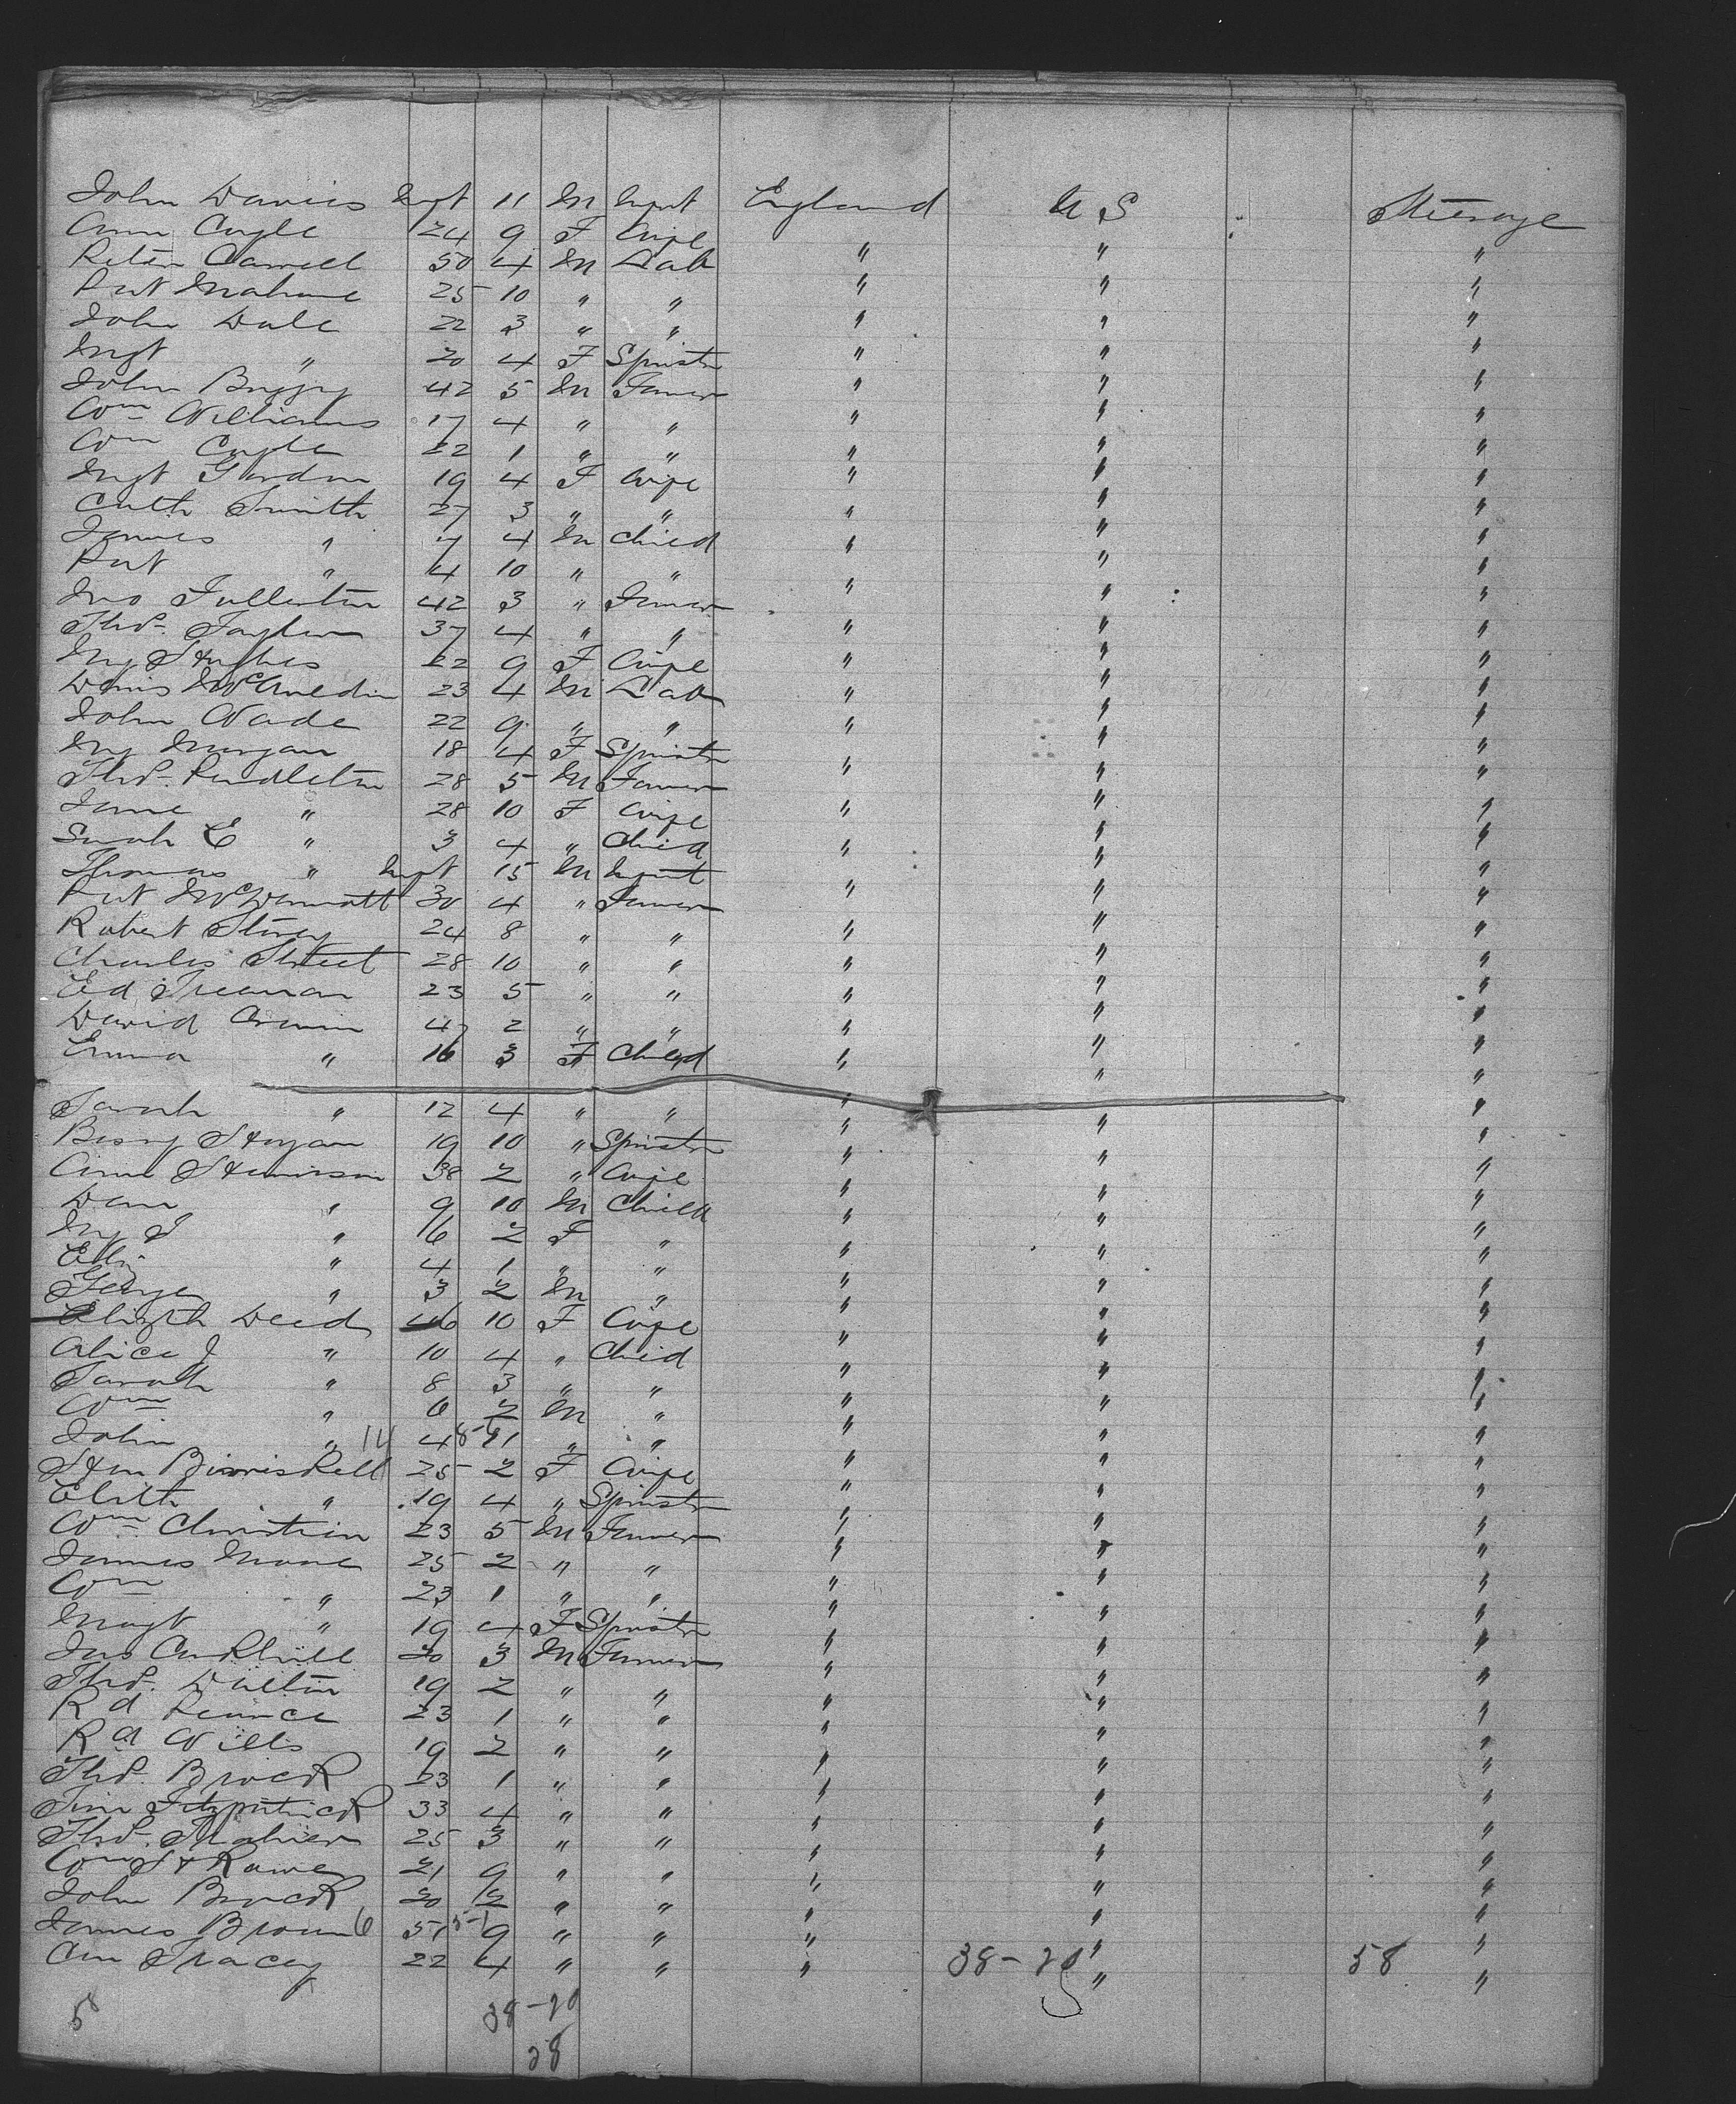 John Davies Inft 11 M Infnt England U S Steerage
Ann Cugle 24 9 F Wife " " "
Peter Carrell 50 4 M Lab " " "
Pat Mahone 25 10 " " " " "
John Dale 22 3 " " " " "
Mgt " 20 4 F Spinstr " " "
John Briggy 42 5 M Farmer " " "
Wm Williams 17 4 " " " " "
Wm Cugle 22 1 " " " " "
Mgt Gordon 19 4 F Wife " " "
Cath Smith 27 3 " " " " "
James " 7 4 M Child " " "
Pat " 4 10 " " " " "
Jno Fullerton 42 3 " Farmer " " "
Thos. Taylor 37 4 " " " " "
My Hughes 22 9 F Wife " " "
Denis 23 4 M Lab " " "
John Wade 22 9 " " " " "
My Morgan 18 4 F Spinstr " " "
Thos. Pendleton 28 5 M Farmer " " "
Jane " 28 10 F Wife " " "
Sarah E " 3 4 " Child " " "
Thomas " Inft 15 M Infnt " " "
Pat McDermott 30 4 " Farmer " " "
Robert Storey 24 8 " " " " "
Charles Street 28 10 " " " " "
Ed Freeman 23 5 " " " " "
David Cronin 47 2 " " " " "
Emma " 16 3 F Child " " "
Sarah " 12 4 " " " " "
Bessy Hogan 19 10 " Spinstr " " "
Ann Harrison 38 2 " Wife " " "
Dan " 9 10 M Child " " "
My J " 6 2 F " " " "
" 4 1 " " " " "
George " 3 2 M " " " "
Elizth Deed 46 10 F Wife " " "
Alice J " 10 4 " Child " " "
Sarah " 8 3 " " " " "
Wm " 6 2 M " " " "
John " 14 4 8-6 11 " " " " "
Han Binniskell 25 2 F Wife " " "
Elizth " 19 4 " Spinstr " " "
Wm Christian 23 5 M Farmer " " "
James Moore 25 2 " " " " "
Wm " 23 1 " " " " "
Magt " 19 4 F Spinstr " " "
Jas 20 3 M Farmer " " "
Thos. Dalton 19 2 " " " " "
Rd Pearce 23 1 " " " " "
Rd Wills 19 2 " " " " "
Thos. Brock 23 1 " " " " "
Tim Fitzpatrick 33 4 " " " " "
Thos. 25 3 " " " " "
Wm H Rowe 21 9 " " " " "
John Brock 20 2 " " " " "
James Brown 6 51 5-1 9 " " " " "
Ann Tracey 22 4 " " " 38-20 " 58 "
58 38-20
28